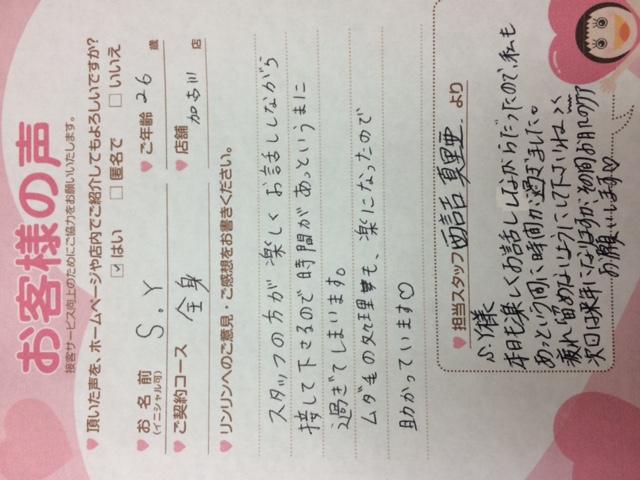 お客様の声
接客サービス向上のためにご協力をお願いいたします。
頂いた声を、ホームページや店内でご紹介してもよろしいですか?
☑はい □匿名で □いいえ
お名前 S.Y ご年齢 26 歳
(イニシャル可)
ご契約コース 全身 店舗 加古川 店
リンリンへのご意見・ご感想をお書きください。
スタッフの方が楽しくお話ししながら
接して下さるので時間があっというまに
過ぎてしまいます。
ムダ毛の処理も、楽になったので
助かっています♡
担当スタッフ 真里亜 より
S.Y様
本日も楽しくお話ししながらだったので、私も
あっという間に時間が過ぎました。
疲れ留めないようにして下さいね
次回は来年になりますが、初回お白しのケア
お願いします♡